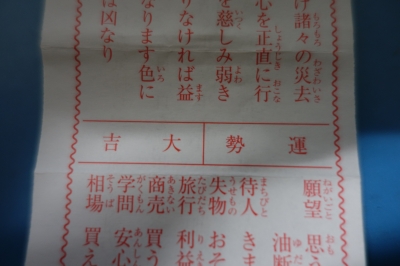 け諸々の災去
心を正直に行
を慈しみ弱き
りなければ益
なります色に
は凶なり
運勢
大吉
願望 思う
油断
待人 きま
失物 おそ
旅行 利益
商売 買う
学問 安心
相場 買え